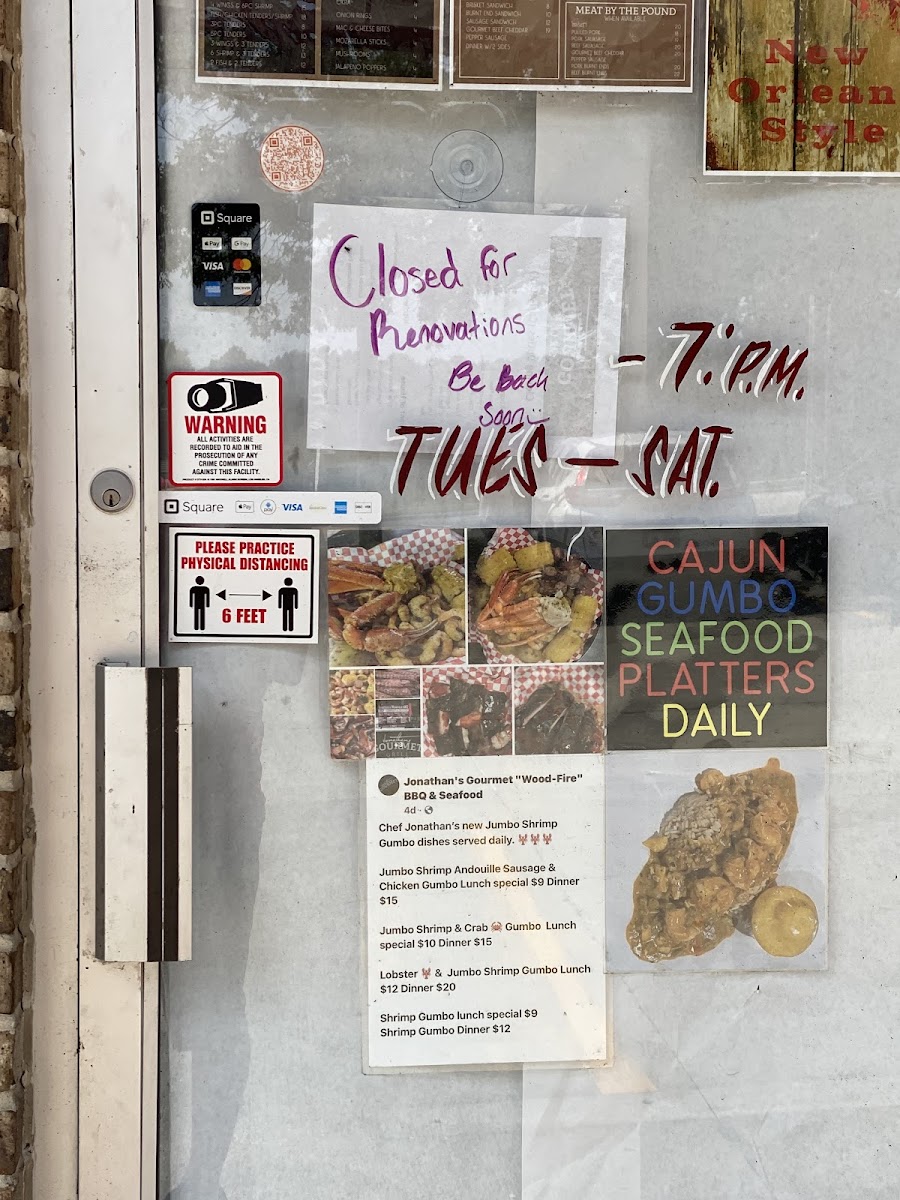 4 WINGS & 6PC SHRIMP
FISH/CHICKEN TENDERS/SHRIMP
3PC TENDERS
5PC TENDERS
3 WINGS & 3 TENDERS
6 SHRIMP & 3 TENDERS
2 FISH & 2 TENDERS
OKRA
ONION RINGS
MAC & CHEESE BITES
MOZARELLA STICKS
MUSHROOMS
JALAPENO POPPERS
BRISKET SANDWICH
BURNT END SANDWICH
SAUSAGE SANDWICH
GOURMET BEEF CHEDDAR
PEPPER SAUSAGE
DINNER W/2 SIDES
MEAT BY THE POUND
WHEN AVAILABLE
BRISKET
PULLED PORK
PORK SAUSAGE
BEEF SAUSAGE
GOURMET BEEF CHEDDAR
PEPPER SAUSAGE
PORK BURNT ENDS
BEEF BURNT ENDS
New
Orleans
Style
Square
Pay
G Pay
VISA
DISCOVER
Closed for
Renovations
Be Back
Soon
- 7: P.M.
TUES - SAT.
WARNING
ALL ACTIVITIES ARE
RECORDED TO AID IN THE
PROSECUTION OF ANY
CRIME COMMITTED
AGAINST THIS FACILITY.
Square
Pay
VISA
PLEASE PRACTICE
PHYSICAL DISTANCING
6 FEET
CAJUN
GUMBO
SEAFOOD
PLATTERS
DAILY
GOURMET
Jonathan's Gourmet "Wood-Fire"
BBQ & Seafood
4d ·
Chef Jonathan's new Jumbo Shrimp
Gumbo dishes served daily. 🦞🦞🦞
Jumbo Shrimp Andouille Sausage &
Chicken Gumbo Lunch special $9 Dinner
$15
Jumbo Shrimp & Crab 🦀 Gumbo Lunch
special $10 Dinner $15
Lobster 🦞 & Jumbo Shrimp Gumbo Lunch
$12 Dinner $20
Shrimp Gumbo lunch special $9
Shrimp Gumbo Dinner $12